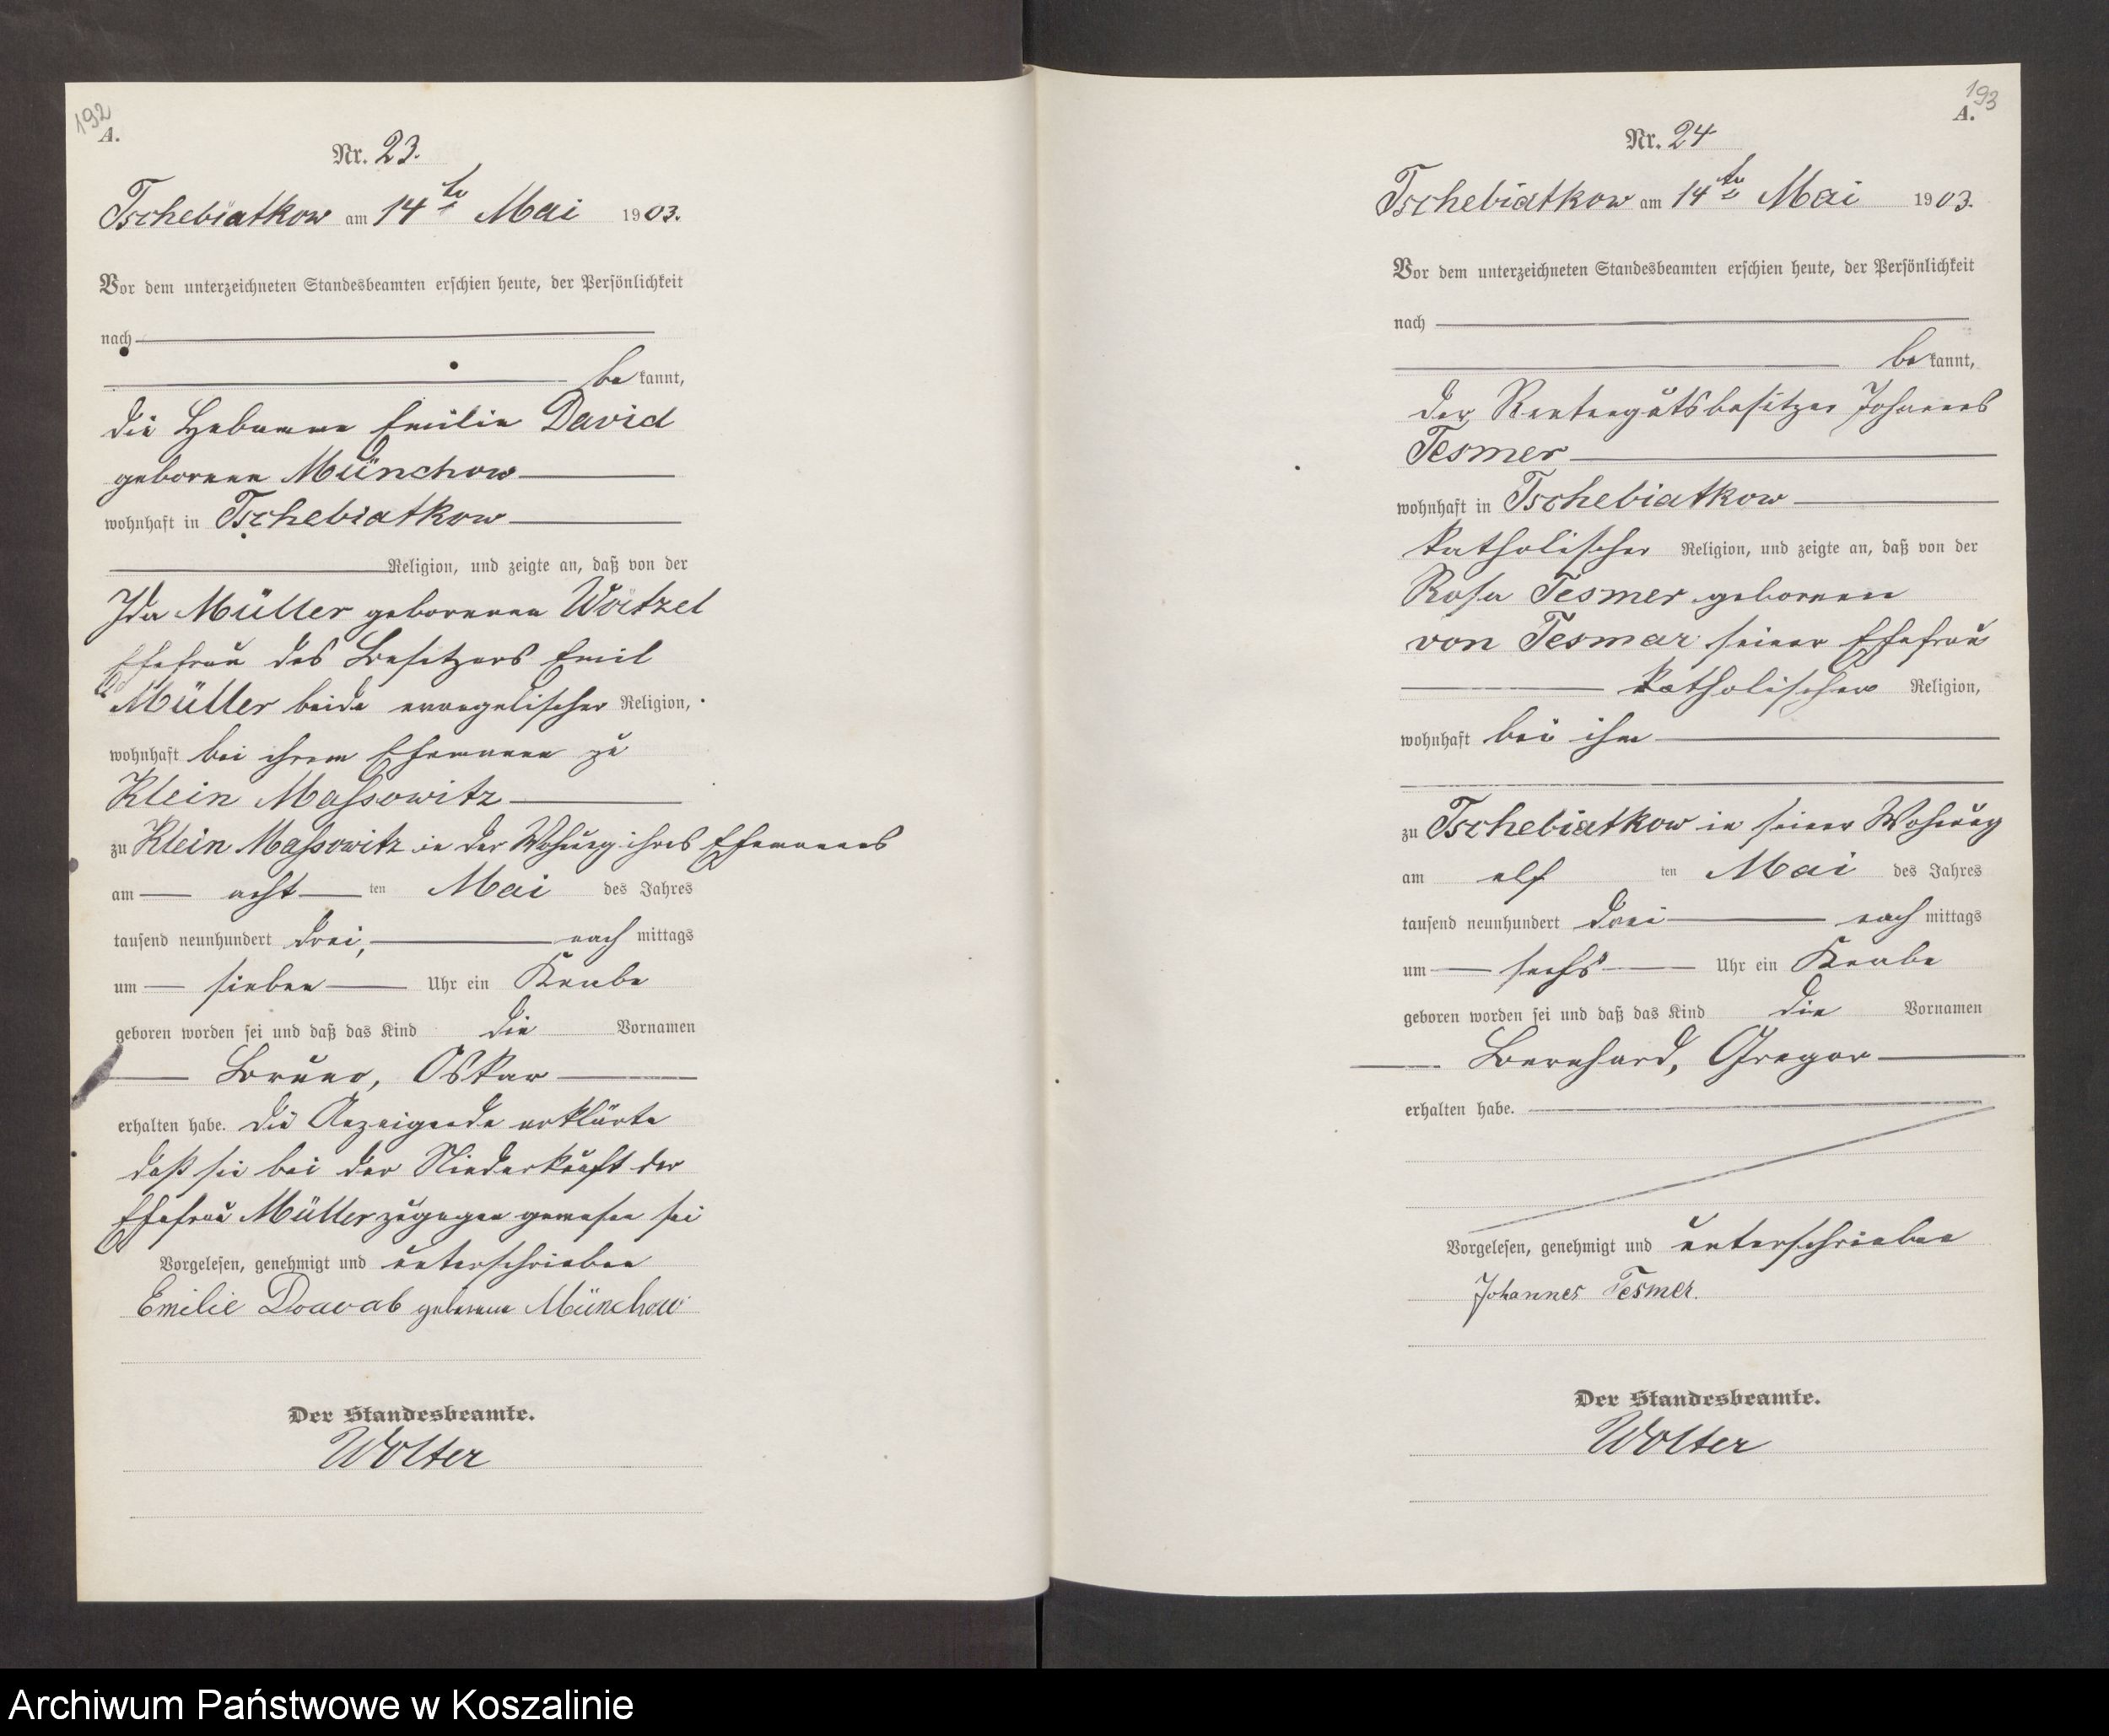 192
A.
Nr. 23.
Tschebiatkow am 14ten Mai 1903.
Vor dem unterzeichneten Standesbeamten erschien heute, der Persönlichkeit
nach
bekannt,
die Hebamme Emilie David
geborene Münchow
wohnhaft in Tschebiatkow
Religion, und zeigte an, daß von der
Ida Müller geborenen
Ehefrau des Besitzers Emil
Müller beide evangelischer Religion,
wohnhaft bei ihrem Ehemann zu
Klein Massowitz
zu Klein Massowitz in der Wohnung ihres Ehemannes
am acht ten Mai des Jahres
tausend neunhundert drei, nach mittags
um sieben Uhr ein Knabe
geboren worden sei und daß das Kind die Vornamen
Bruno, Oskar
erhalten habe. Die Anzeigende erklärte
daß sie bei der Niederkunft der
Ehefrau Müller zugegen gewesen sei
Vorgelesen, genehmigt und unterschrieben
Emilie geborene Münchow
Der Standesbeamte.
Wolter
193
A.
Nr. 24
Tschebiatkow am 14ten Mai 1903.
Vor dem unterzeichneten Standesbeamten erschien heute, der Persönlichkeit
nach
bekannt,
der Rentengutsbesitzer Johannes
Tesmer
wohnhaft in Tschebiatkow
katholischer Religion, und zeigte an, daß von der
Rosa Tesmer geborenen
von Tesmar seiner Ehefrau
katholischer Religion,
wohnhaft bei ihm
zu Tschebiatkow in seiner Wohnung
am elf ten Mai des Jahres
tausend neunhundert drei nach mittags
um sechs Uhr ein Knabe
geboren worden sei und daß das Kind die Vornamen
Bernhard, Gregor
erhalten habe.
Vorgelesen, genehmigt und unterschrieben
Johannes Tesmer.
Der Standesbeamte.
Wolter
Archiwum Państwowe w Koszalinie